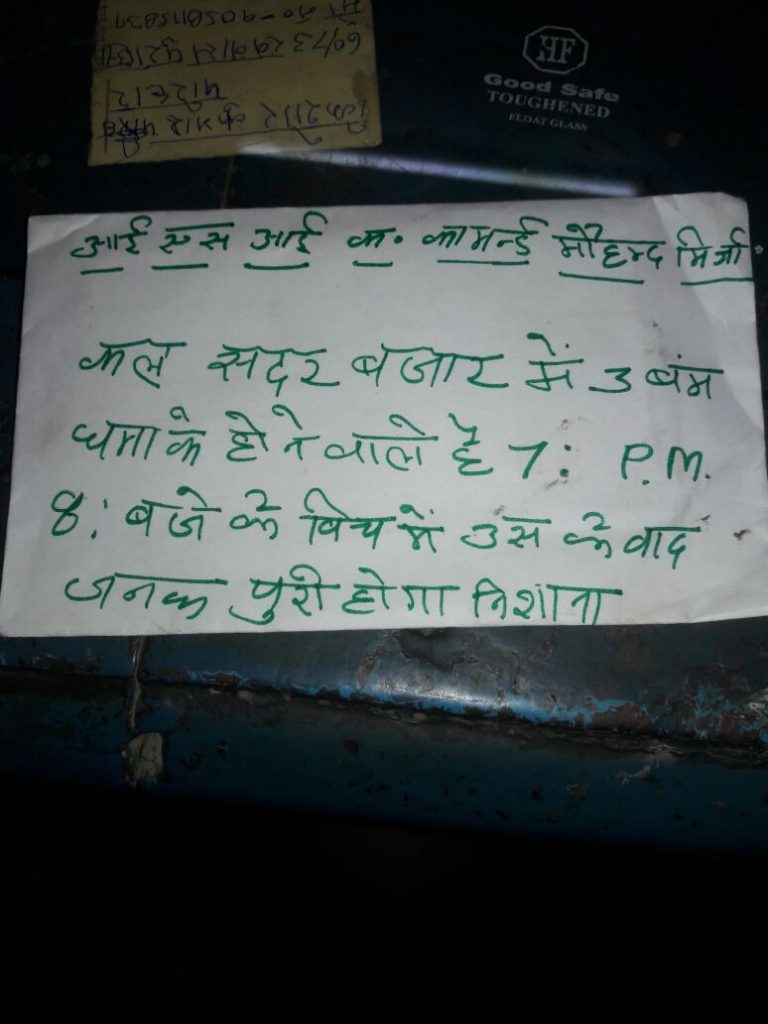 HF
Good Safe
TOUGHENED
FLOAT GLASS
आई एस आई क. कामर्न्ड मौहम्द मिर्जा.
कल सदर बजार में 3 बंम
धमाके होने वाले है 7: P.M.
8: बजे के विच में उस के वाद
जनक पुरी होगा निशाना